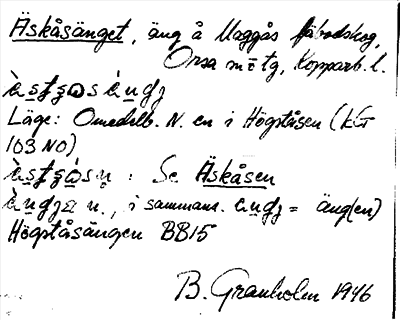 Äskåsänget, äng å Maggås fäbodskog,
Orsa mötg, Kopparb. l.
Läge: Omedelb. N. en i Högståsen (kG
103 NO)
: Se Äskåsen
, i sammans. = äng(en)
Högståsängen BB15
B. Granholm 1946